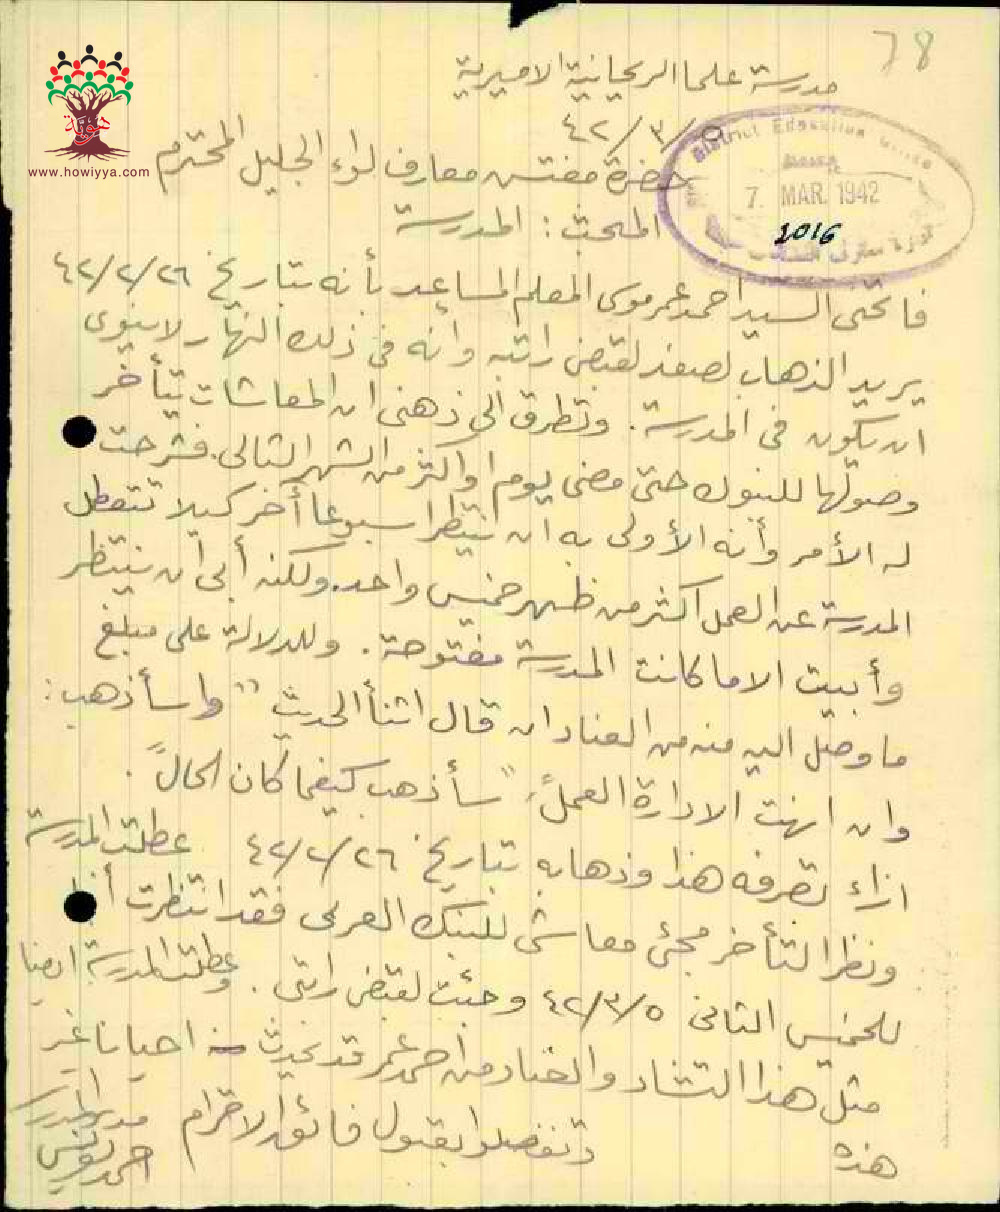 78
مدرسة علما الريحانية الاميرية
٥/٣/٤٢
حضرة مفتش معارف لواء الجليل المحترم
District Education Office
7 MAR. 1942
2016
هوية
www.howiyya.com
المبحث : المدرسة
فاتحني السيد احمد عمر موسى المعلم المساعد بأنه بتاريخ ٢٦/٢/٤٢
يريد الذهاب لصفد لقبض راتبه وانه في ذلك النهار لا ينوى
ان يكون في المدرسة. وتطرق الى ذهني ان المعاشات يتأخر
وصولها للبنوك حتى مضى يوم او اكثر من الشهر التالي. فشرحت
له الأمر وأنه الأولى به ان ينتظر اسبوعا أخر كيلا تتعطل
المدرسة عن العمل اكثر من ظهر خميس واحد. ولكنه أبى أن ينتظر
وأبيت الا ما كانت المدرسة مفتوحة. وللدلالة على مبلغ
ما وصل اليه منه من العناد ان قال اثنأ الحديث " وسأذهب :
وان انهت الادارة العمل" " سأذهب كيفما كان الحال".
ازاء تصرفه هذا وذهابه بتاريخ ٢٦/٢/٤٢ عطلت المدرسة
ونظرا لتأخر مجئ معاشى للبنك العربى فقد انتظرت
للخميس الثاني ٥/٣/٤٢ وجئت لقبض راتبي. وعطلت المدرسة ايضا
مثل هذا التشاد والعناد من احمد عمر قد يحدث احيانا غير
هذه وتفضلوا بقبول فائق الاحترام
مدير المدرسة
احمد